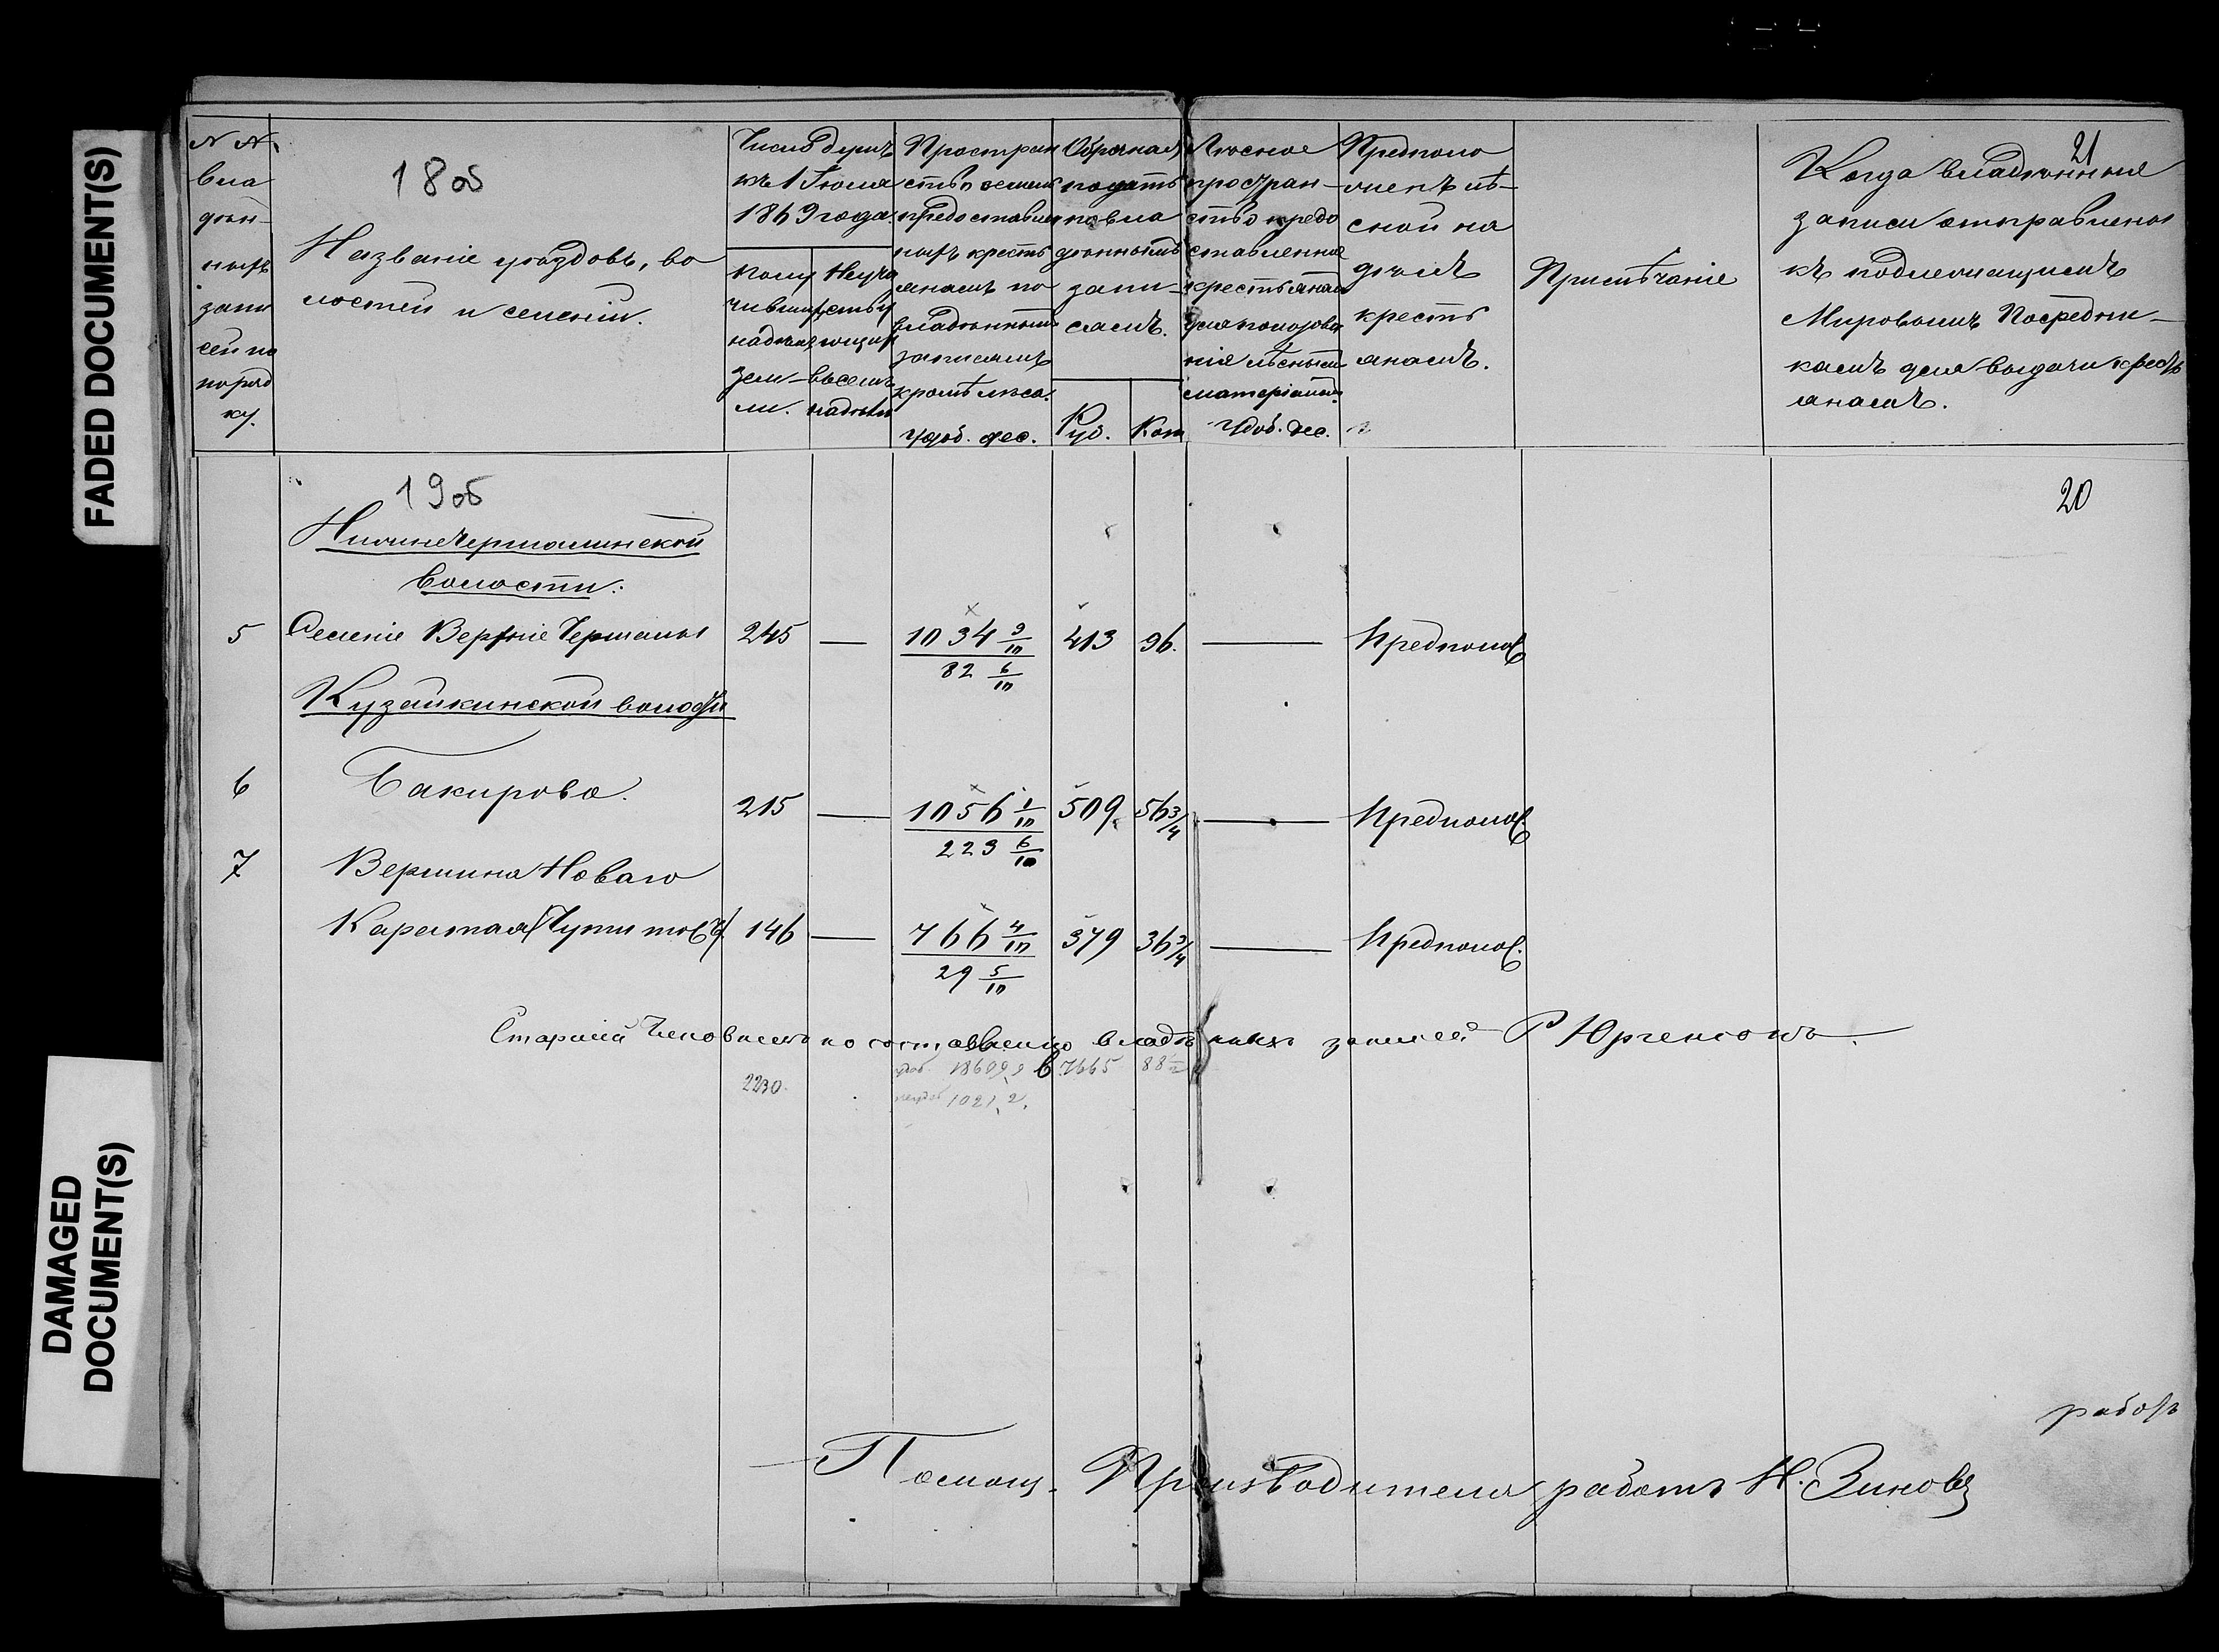 FADED DOCUMENT(S)
DAMAGED
DOCUMENT(S)
N N.
вла
дѣн-
ныхъ
запи
сей по
поряд
ку.
18об
Названіе уѣздовъ, во
лостей и селеній.
Число душъ
къ 1 Іюля
1869 года.
полу
чившихъ
надѣлъ
зем-
ли.
Неуча
ствую
щихъ
въ семъ
надѣлѣ
Простран
ство земли
предоставлен
ныхъ кресть
янамъ по
владѣннымъ
записямъ
кромѣ лѣса.
Удоб. дес.
Оброчная
подать
по вла
дѣннымъ
запи-
сямъ.
Руб.
Коп
Лѣсное
простран-
ство предо
ставленное
крестьянамъ
для пользова
нія лѣсными
матеріалами
Удоб. дес.
Предполо
женъ лѣ-
сной на
дѣлъ
кресть
янамъ.
Примѣчаніе
21
Когда владѣнныя
записи отправлены
къ подлежащимъ
Мировымъ Посредни-
камъ для выдачи кресть
янамъ.
19об
20
Нижнечершилинской
волости:
5 Селеніе Верхніе Чершилы 245 — 1034 9/10 413 96. — Предполож.
82 6/10
Кузайкинской волости
6 Бакирово. 215 — 1056 1/10 509 56 3/4 — Предполож.
223 6/10
7 Вершина Новаго
Каратая 146 — 766 4/10 379 36 3/4 — Предполож.
29 5/10
Старшій Чиновникъ по составленію владѣнныхъ записей Р Юргенсонъ.
2230. удоб. 18699,9 7665 88
неудоб 1021,2.
работъ
Помощ. Производителя работъ Н. Зиновъ